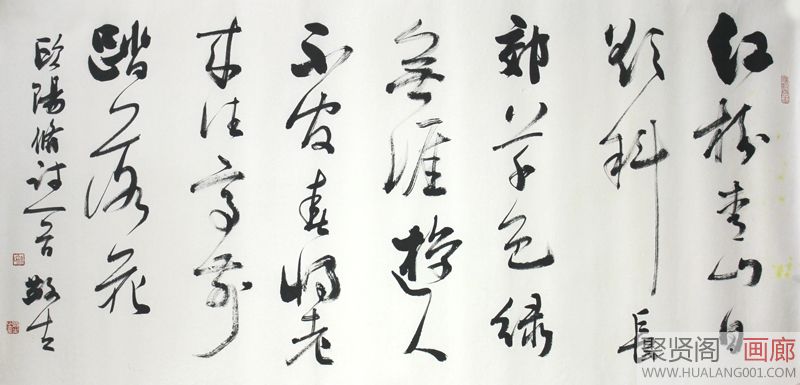 红树青山日
欲斜长
郊草色绿
無涯遊人
不管春将老
来往亭前
踏落花
欧陽脩诗一首
聚贤阁画廊
WWW.HUALANG001.COM